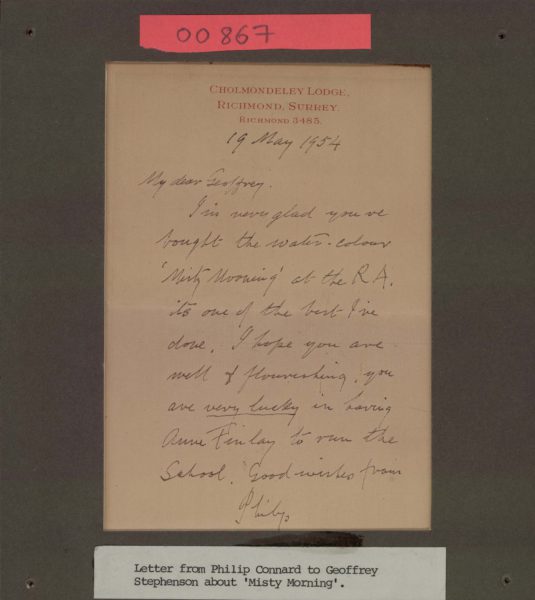 00867
CHOLMONDELEY LODGE,
RICHMOND, SURREY.
RICHMOND 3485.
19 May 1954
My dear Geoffrey.
I'm very glad you've
bought the water-colour
'Misty Morning' at the R.A.
its one of the best I've
done. I hope you are
well & flourishing, you
are very lucky in having
Anne Finlay to run the
School. Good wishes from
Philip
Letter from Philip Connard to Geoffrey
Stephenson about 'Misty Morning'.